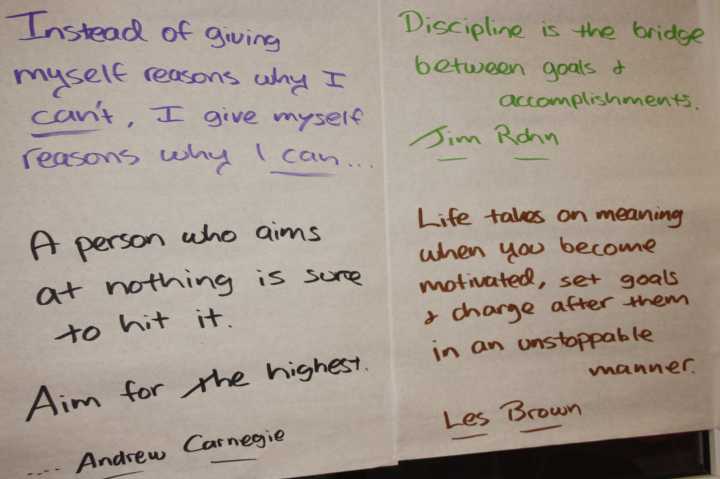 Instead of giving
myself reasons why I
can't, I give myself
reasons why I can...
A person who aims
at nothing is sure
to hit it.
Aim for the highest.
.... Andrew Carnegie
Discipline is the bridge
between goals &
accomplishments.
Jim Rohn
Life takes on meaning
when you become
motivated, set goals
& charge after them
in an unstoppable
manner.
Les Brown